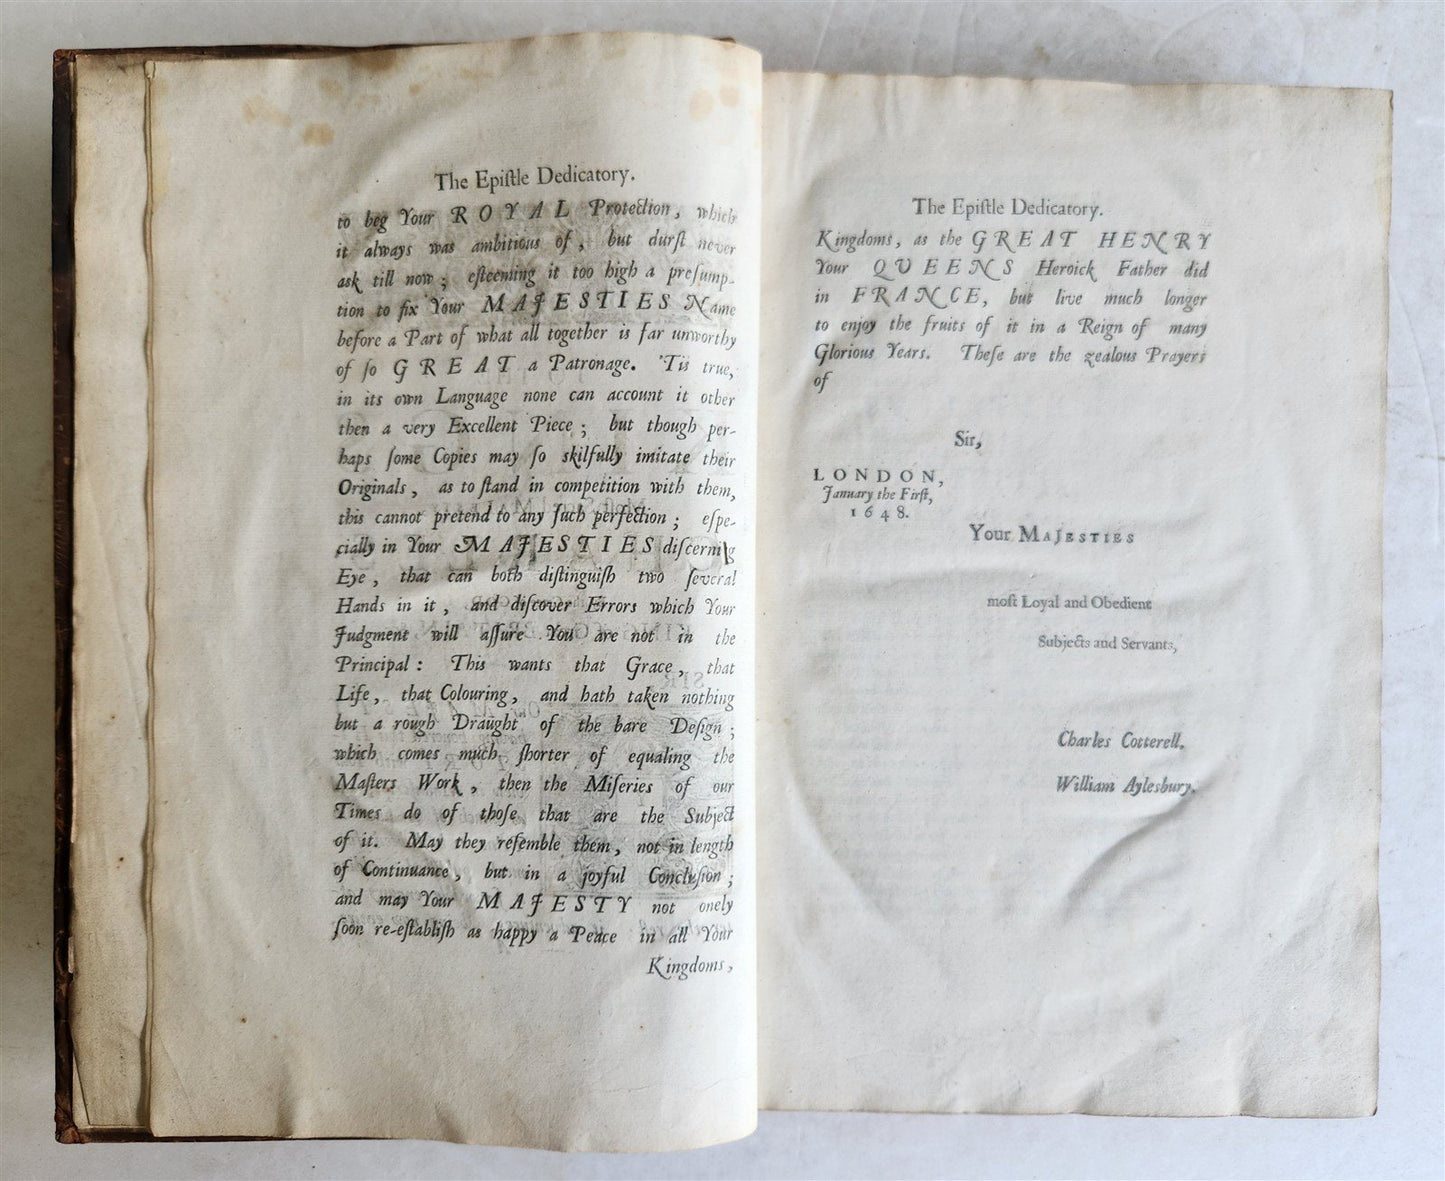 The Epiſtle Dedicatory.
to beg Your ROYAL Protection, which
it always was ambitious of, but durſt never
ask till now; eſteeming it too high a preſump-
tion to fix Your MAJESTIES Name
before a Part of what all together is far unworthy
of ſo GREAT a Patronage. 'Tis true,
in its own Language none can account it other
then a very Excellent Piece; but though per-
haps ſome Copies may ſo skilfully imitate their
Originals, as to ſtand in competition with them,
this cannot pretend to any ſuch perfection; eſpe-
cially in Your MAJESTIES diſcerning
Eye, that can both diſtinguiſh two ſeveral
Hands in it, and diſcover Errors which Your
Judgment will aſſure You are not in the
Principal: This wants that Grace, that
Life, that Colouring, and hath taken nothing
but a rough Draught of the bare Deſign;
which comes much ſhorter of equaling the
Maſters Work, then the Miſeries of our
Times do of thoſe that are the Subject
of it. May they reſemble them, not in length
of Continuance, but in a joyful Concluſion;
and may Your MAJESTY not onely
ſoon re-eſtabliſh as happy a Peace in all Your
Kingdoms,
The Epiſtle Dedicatory.
Kingdoms, as the GREAT HENRY
Your QUEENS Heroick Father did
in FRANCE, but live much longer
to enjoy the fruits of it in a Reign of many
Glorious Years. Theſe are the zealous Prayers
of
Sir,
LONDON,
January the Firſt,
1648.
Your MAJESTIES
moſt Loyal and Obedient
Subjects and Servants,
Charles Cotterell.
William Aylesbury.